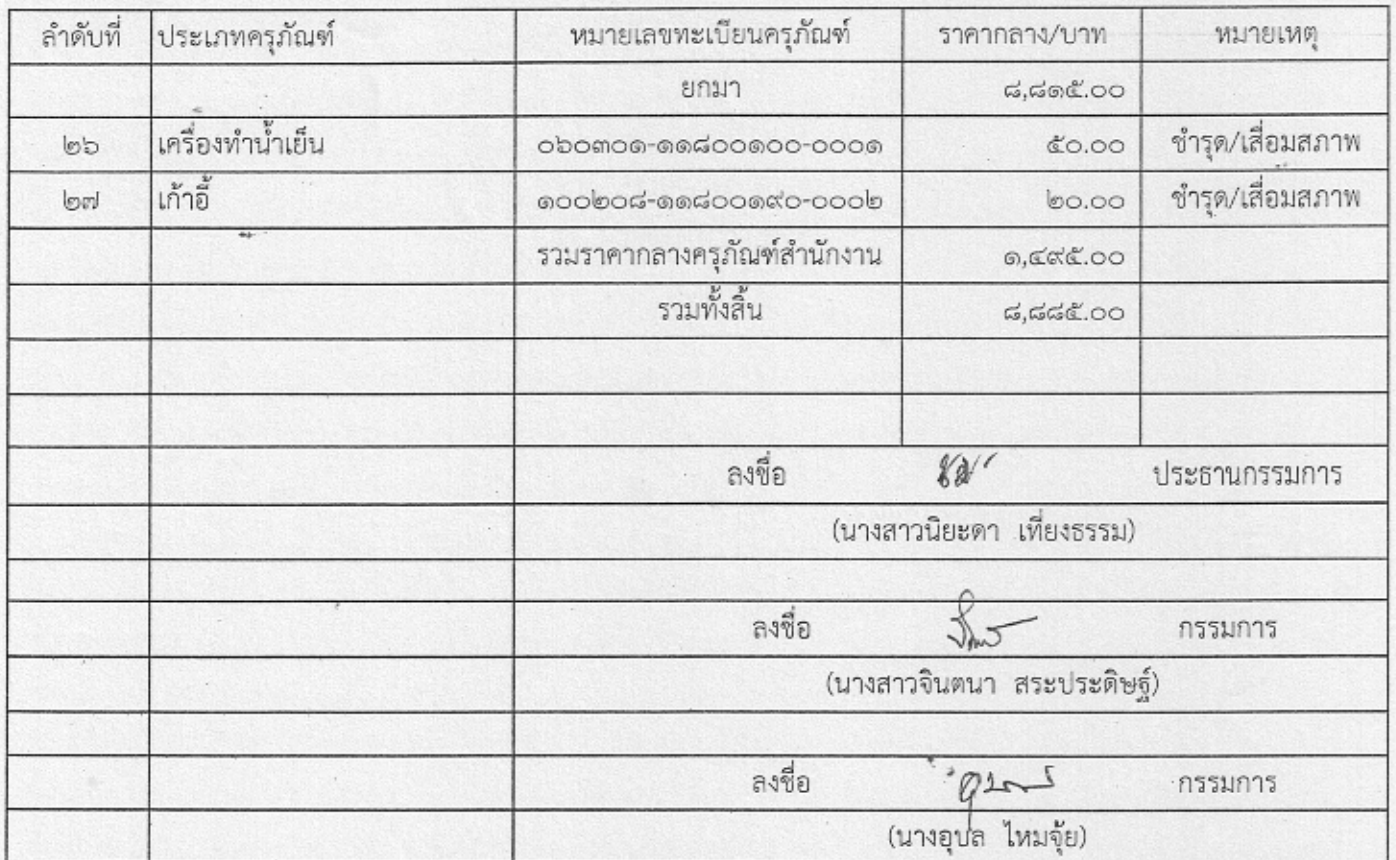 ลำดับที่ ประเภทครุภัณฑ์ หมายเลขทะเบียนครุภัณฑ์ ราคากลาง/บาท หมายเหตุ
ยกมา ๘,๘๑๕.๐๐
๒๖ เครื่องทำน้ำเย็น ๐๖๐๓๐๑-๑๑๘๐๐๑๐๐-๐๐๐๑ ๕๐.๐๐ ชำรุด/เสื่อมสภาพ
๒๗ เก้าอี้ ๑๐๐๒๐๘-๑๑๘๐๐๑๙๐-๐๐๐๒ ๒๐.๐๐ ชำรุด/เสื่อมสภาพ
รวมราคากลางครุภัณฑ์สำนักงาน ๑,๔๙๕.๐๐
รวมทั้งสิ้น ๘,๘๘๕.๐๐
ลงชื่อ ประธานกรรมการ
(นางสาวนิยะดา เที่ยงธรรม)
ลงชื่อ กรรมการ
(นางสาวจินตนา สระประดิษฐ์)
ลงชื่อ กรรมการ
(นางอุบล ไหมจุ้ย)